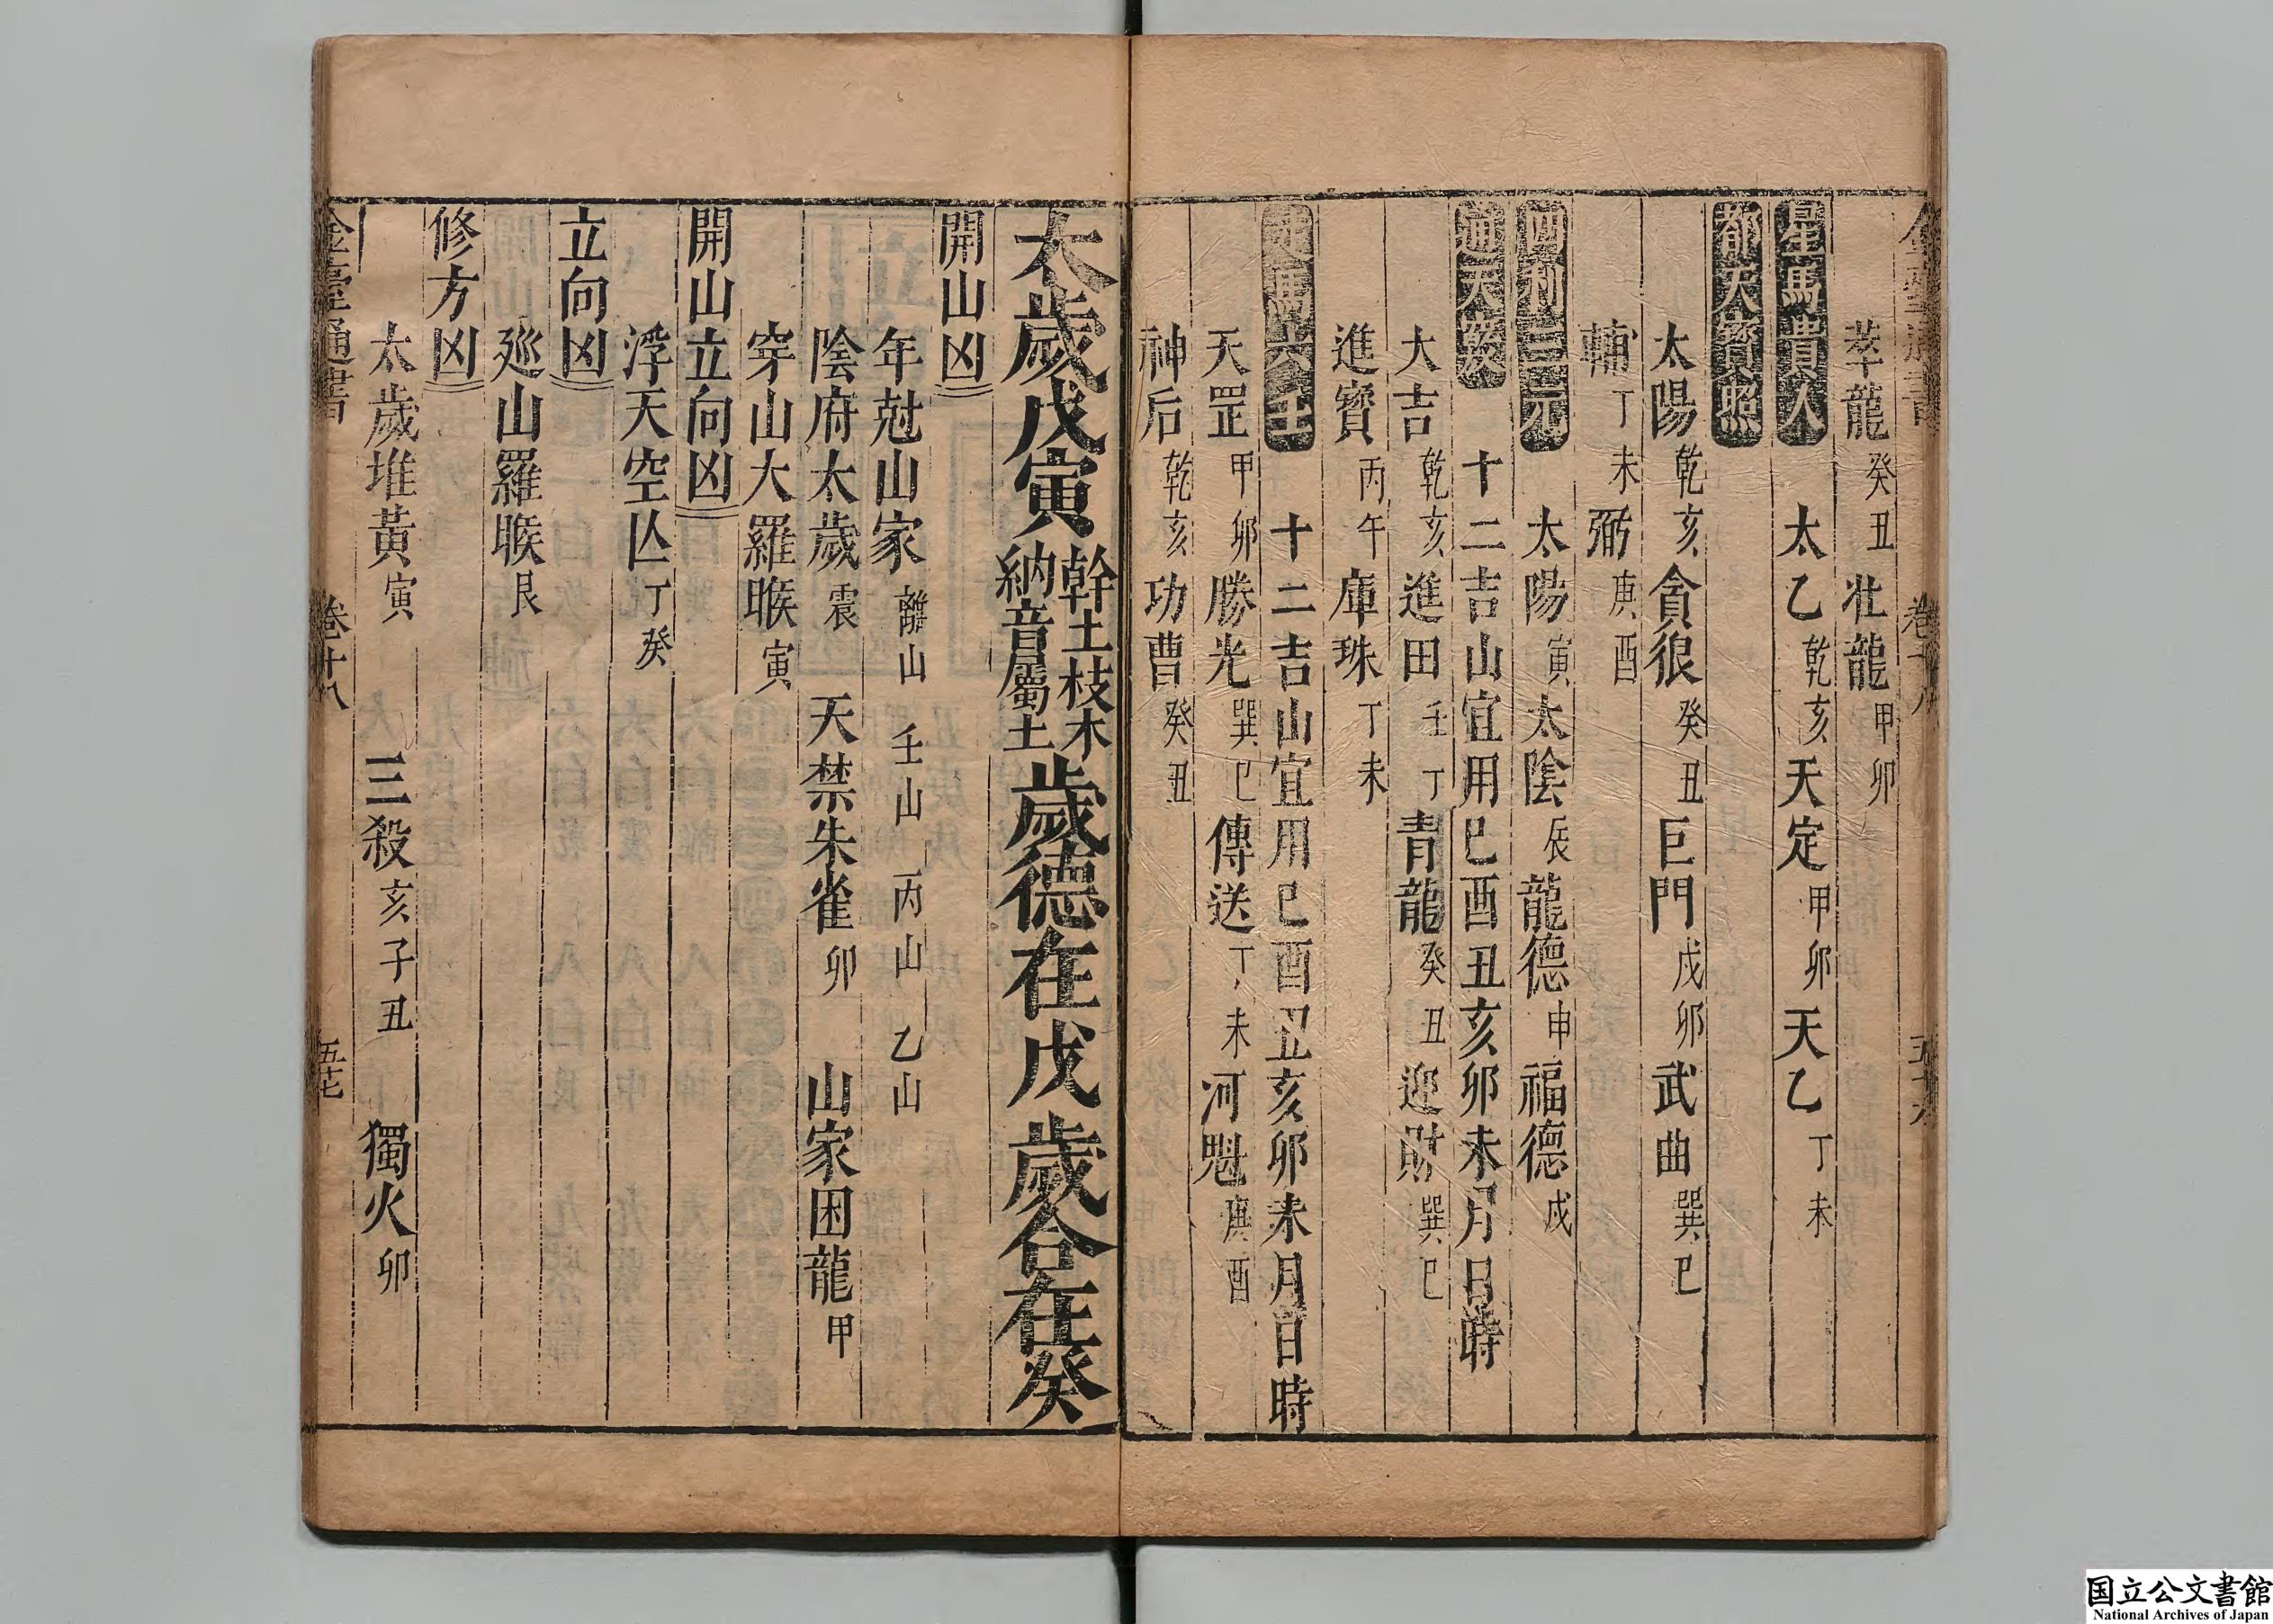 萃龍癸丑 壯龍甲卯
星馬貴人 太乙乾亥 天定甲卯 天乙丁未
都天寳照
太陽乾亥 貪狠癸丑 巨門戊卯 武曲巽巳
輔丁未 弼庚酉
四利三元 太陽寅 太陰辰 龍德申 福德戌
通天竅 十二吉山宜用巳酉丑亥卯未月日時
大吉乾亥 進田壬丁 青龍癸丑 迎財巽巳
進寳丙午 庫珠丁未
走馬六壬 十二吉山宜用巳酉丑亥卯未月日時
天罡甲卯 勝光巽巳 傳送丁未 河魁庚酉
神后乾亥 功曹癸丑
太歲戊寅 幹土枝木 納音屬土 歲德在戊 歲合在癸
開山凶
年尅山家 離山 壬山 丙山 乙山
陰府太歲震 天禁朱雀卯 山家困龍甲
穿山大羅睺寅
開山立向凶
浮天空亾丁癸
立向凶
廵山羅睺艮
修方凶
太歲堆黃寅 三殺亥子丑 獨火卯
金臺通書 卷十八 五十七
国立公文書館
National Archives of Japan